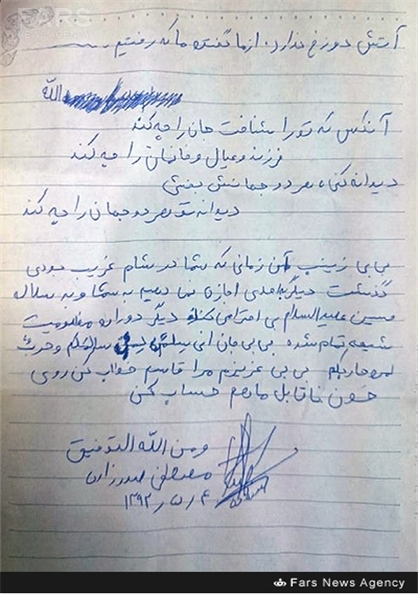 FARS
آتش دوزخ ندارد. از ما گفتن ما که رفتیم
الله
آنکس که تو را شناخت جان را چه کند
فرزند و عیال و خانمان را چه کند
دیوانه کنی هر دو جهانش بخشی
دیوانه تو هر دو جهان را چه کند
بی بی زینب آن زمانی که شما در شام غریب بودی
گذشت دیگر به احدی اجازه نمی دهیم به شما و به سلاله
حسین علیه السلام بی احترامی کند دیگر دوران مظلومیت
شیعه تمام شده بی بی جان
بی بی عزیزم مرا قاسم خطاب کن روی
خون ناقابل ما هم حساب کن
ومن الله التوفیق
مصطفی صدرزاده
۱۳۹۲/۵/۴
Fars News Agency